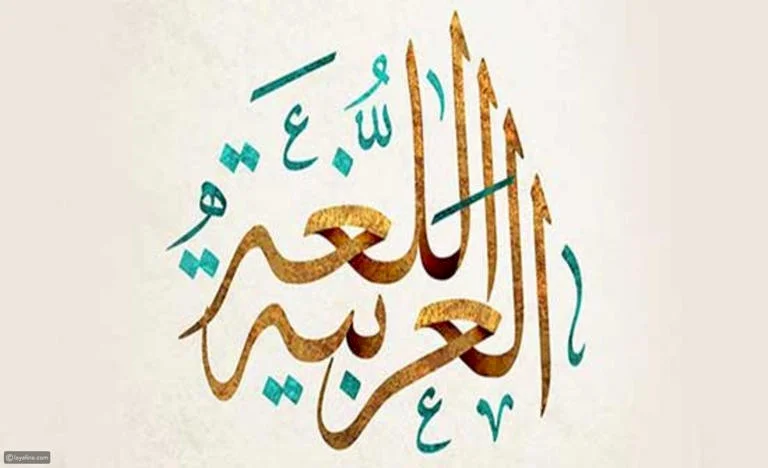 اللُّغة
العربية
©layalina.com